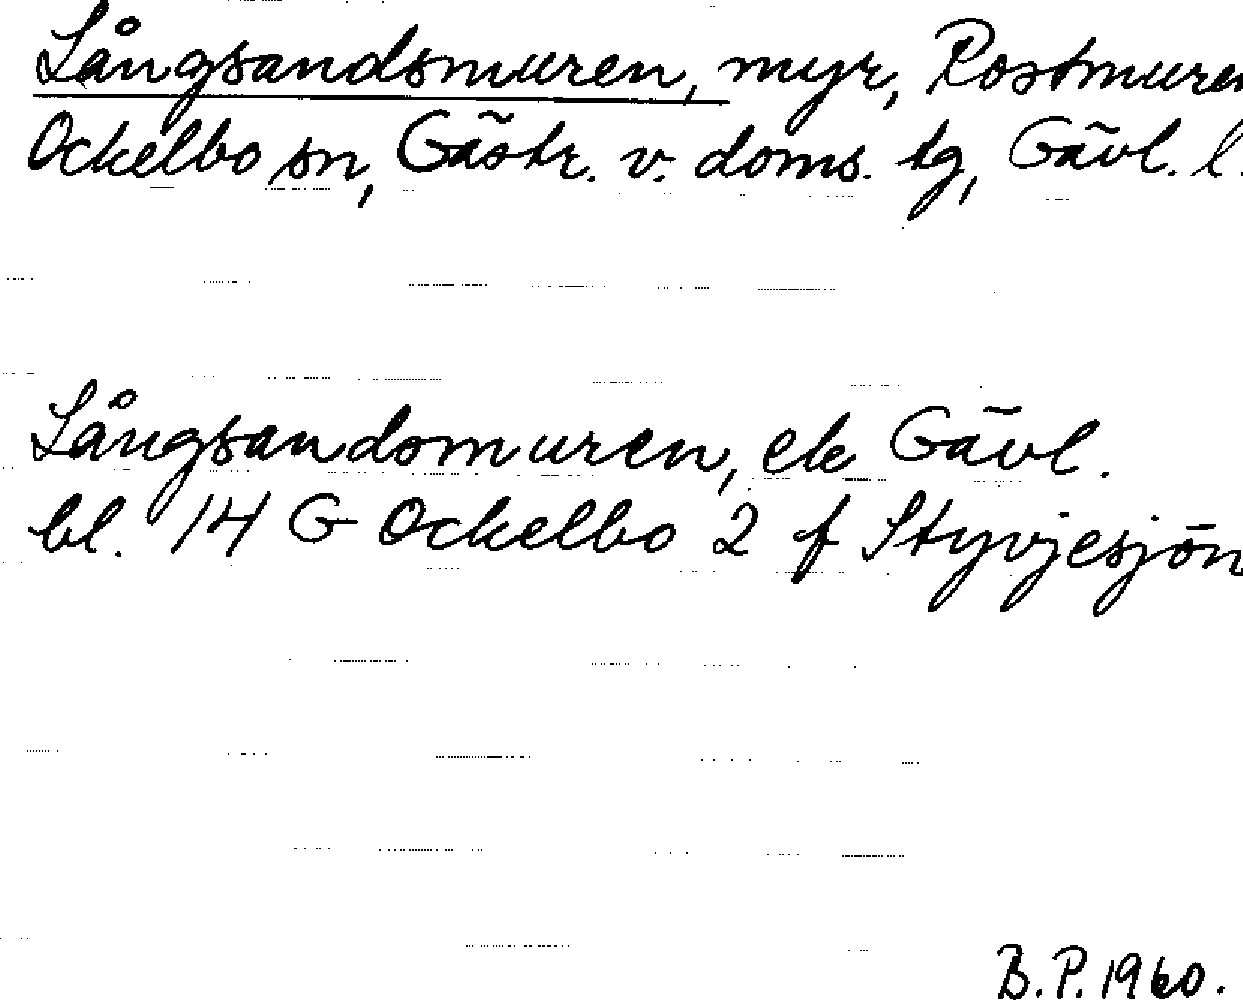 Långsandsmuren, myr, Rostmuren
Ockelbo sn, Gästr. v. doms. tg, Gävl. l.
Långsandsmuren, ek Gävl.
bl. 14 G Ockelbo 2 f Styvjesjön
B.P. 1960.